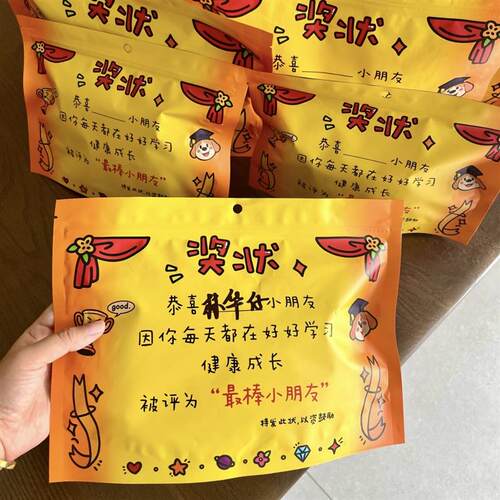 奖状
恭喜______小朋友
奖状
恭喜______小朋友
因你每天都在好好学习
健康成长
被评为“最棒小朋友”
特发此状,以资鼓励
奖状
恭喜______小朋友
因你每天都在好好学习
健康成长
被评为“最
奖状
good.
恭喜林华仔小朋友
因你每天都在好好学习
健康成长
被评为“最棒小朋友”
特发此状,以资鼓励